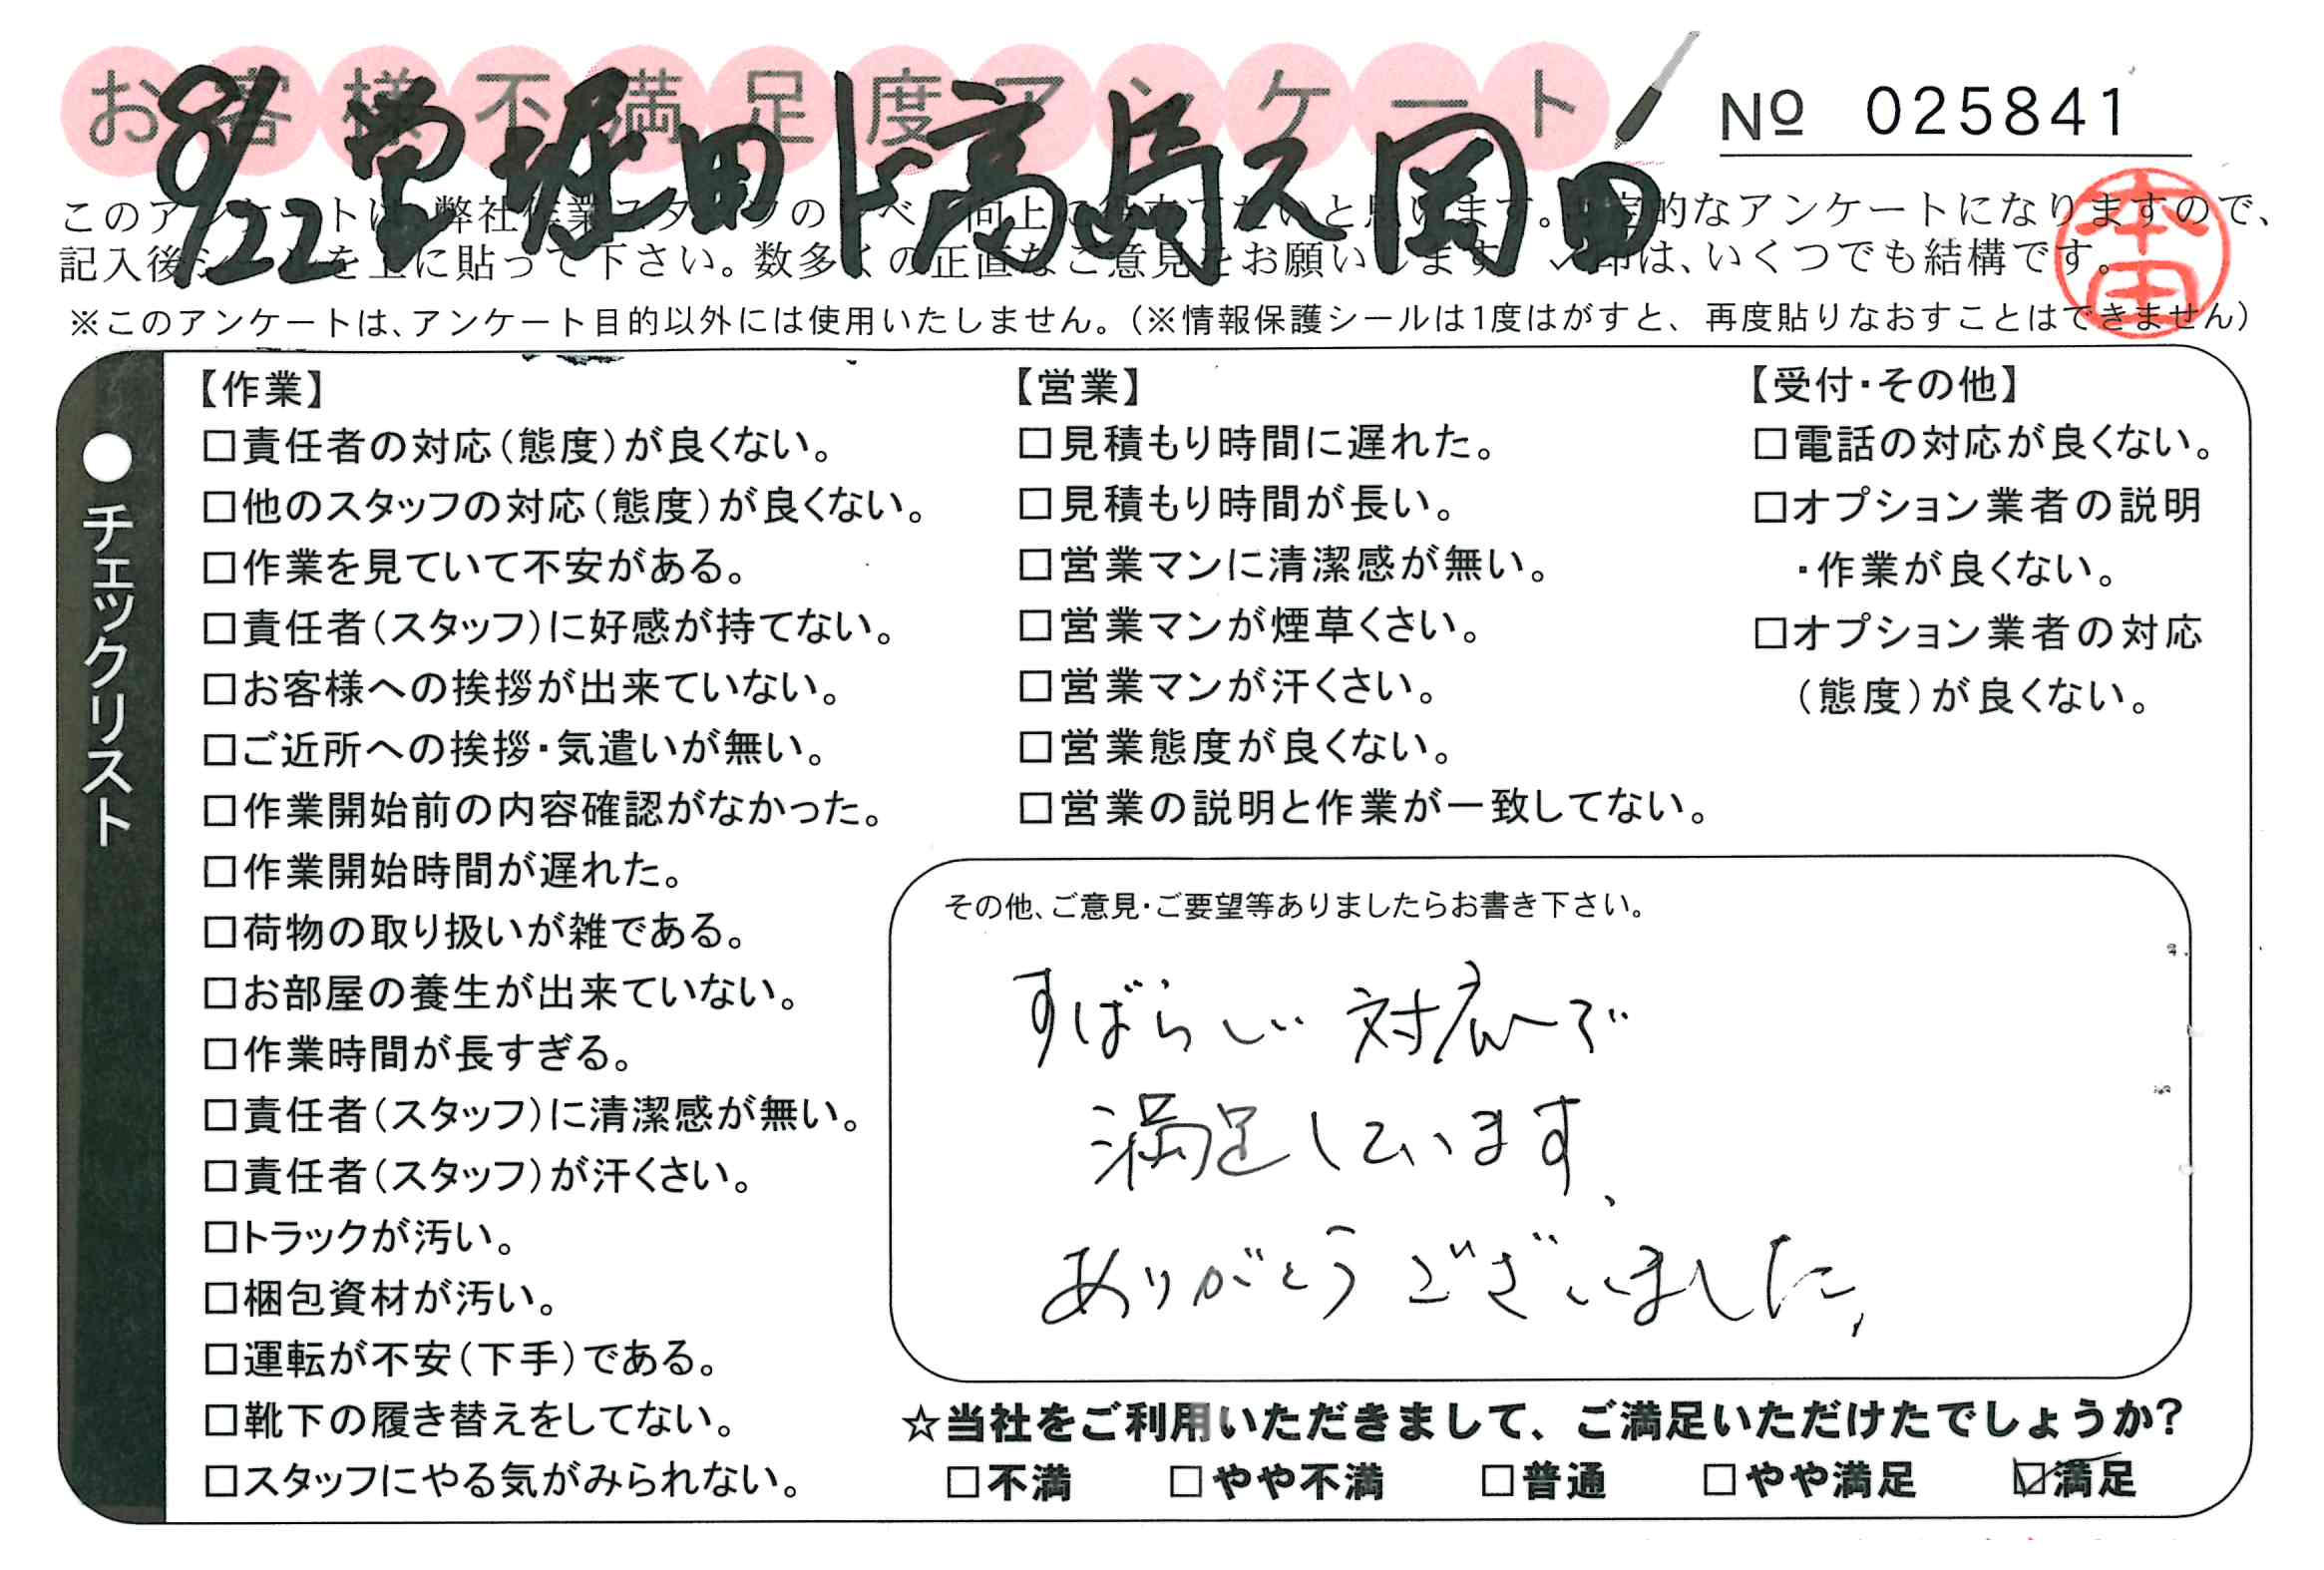 お客様不満足度アンケート
8/22 営 堀田 ト 高島 ス 岡田
№ 025841
本田
このアンケートは、弊社作業スタッフのレベル向上に役立てたいと思います。 的なアンケートになりますので、
記入後シールを上に貼って下さい。数多くの正直なご意見をお願いします。✓印は、いくつでも結構です。
※このアンケートは、アンケート目的以外には使用いたしません。(※情報保護シールは1度はがすと、再度貼りなおすことはできません)
●チェックリスト
【作業】
□責任者の対応(態度)が良くない。
□他のスタッフの対応(態度)が良くない。
□作業を見ていて不安がある。
□責任者(スタッフ)に好感が持てない。
□お客様への挨拶が出来ていない。
□ご近所への挨拶・気遣いが無い。
□作業開始前の内容確認がなかった。
□作業開始時間が遅れた。
□荷物の取り扱いが雑である。
□お部屋の養生が出来ていない。
□作業時間が長すぎる。
□責任者(スタッフ)に清潔感が無い。
□責任者(スタッフ)が汗くさい。
□トラックが汚い。
□梱包資材が汚い。
□運転が不安(下手)である。
□靴下の履き替えをしてない。
□スタッフにやる気がみられない。
【営業】
□見積もり時間に遅れた。
□見積もり時間が長い。
□営業マンに清潔感が無い。
□営業マンが煙草くさい。
□営業マンが汗くさい。
□営業態度が良くない。
□営業の説明と作業が一致してない。
【受付・その他】
□電話の対応が良くない。
□オプション業者の説明
・作業が良くない。
□オプション業者の対応
(態度)が良くない。
その他、ご意見・ご要望等ありましたらお書き下さい。
すばらしい対応で
満足しています、
ありがとうございました、
☆当社をご利用いただきまして、ご満足いただけたでしょうか?
□不満 □やや不満 □普通 □やや満足 ☑満足